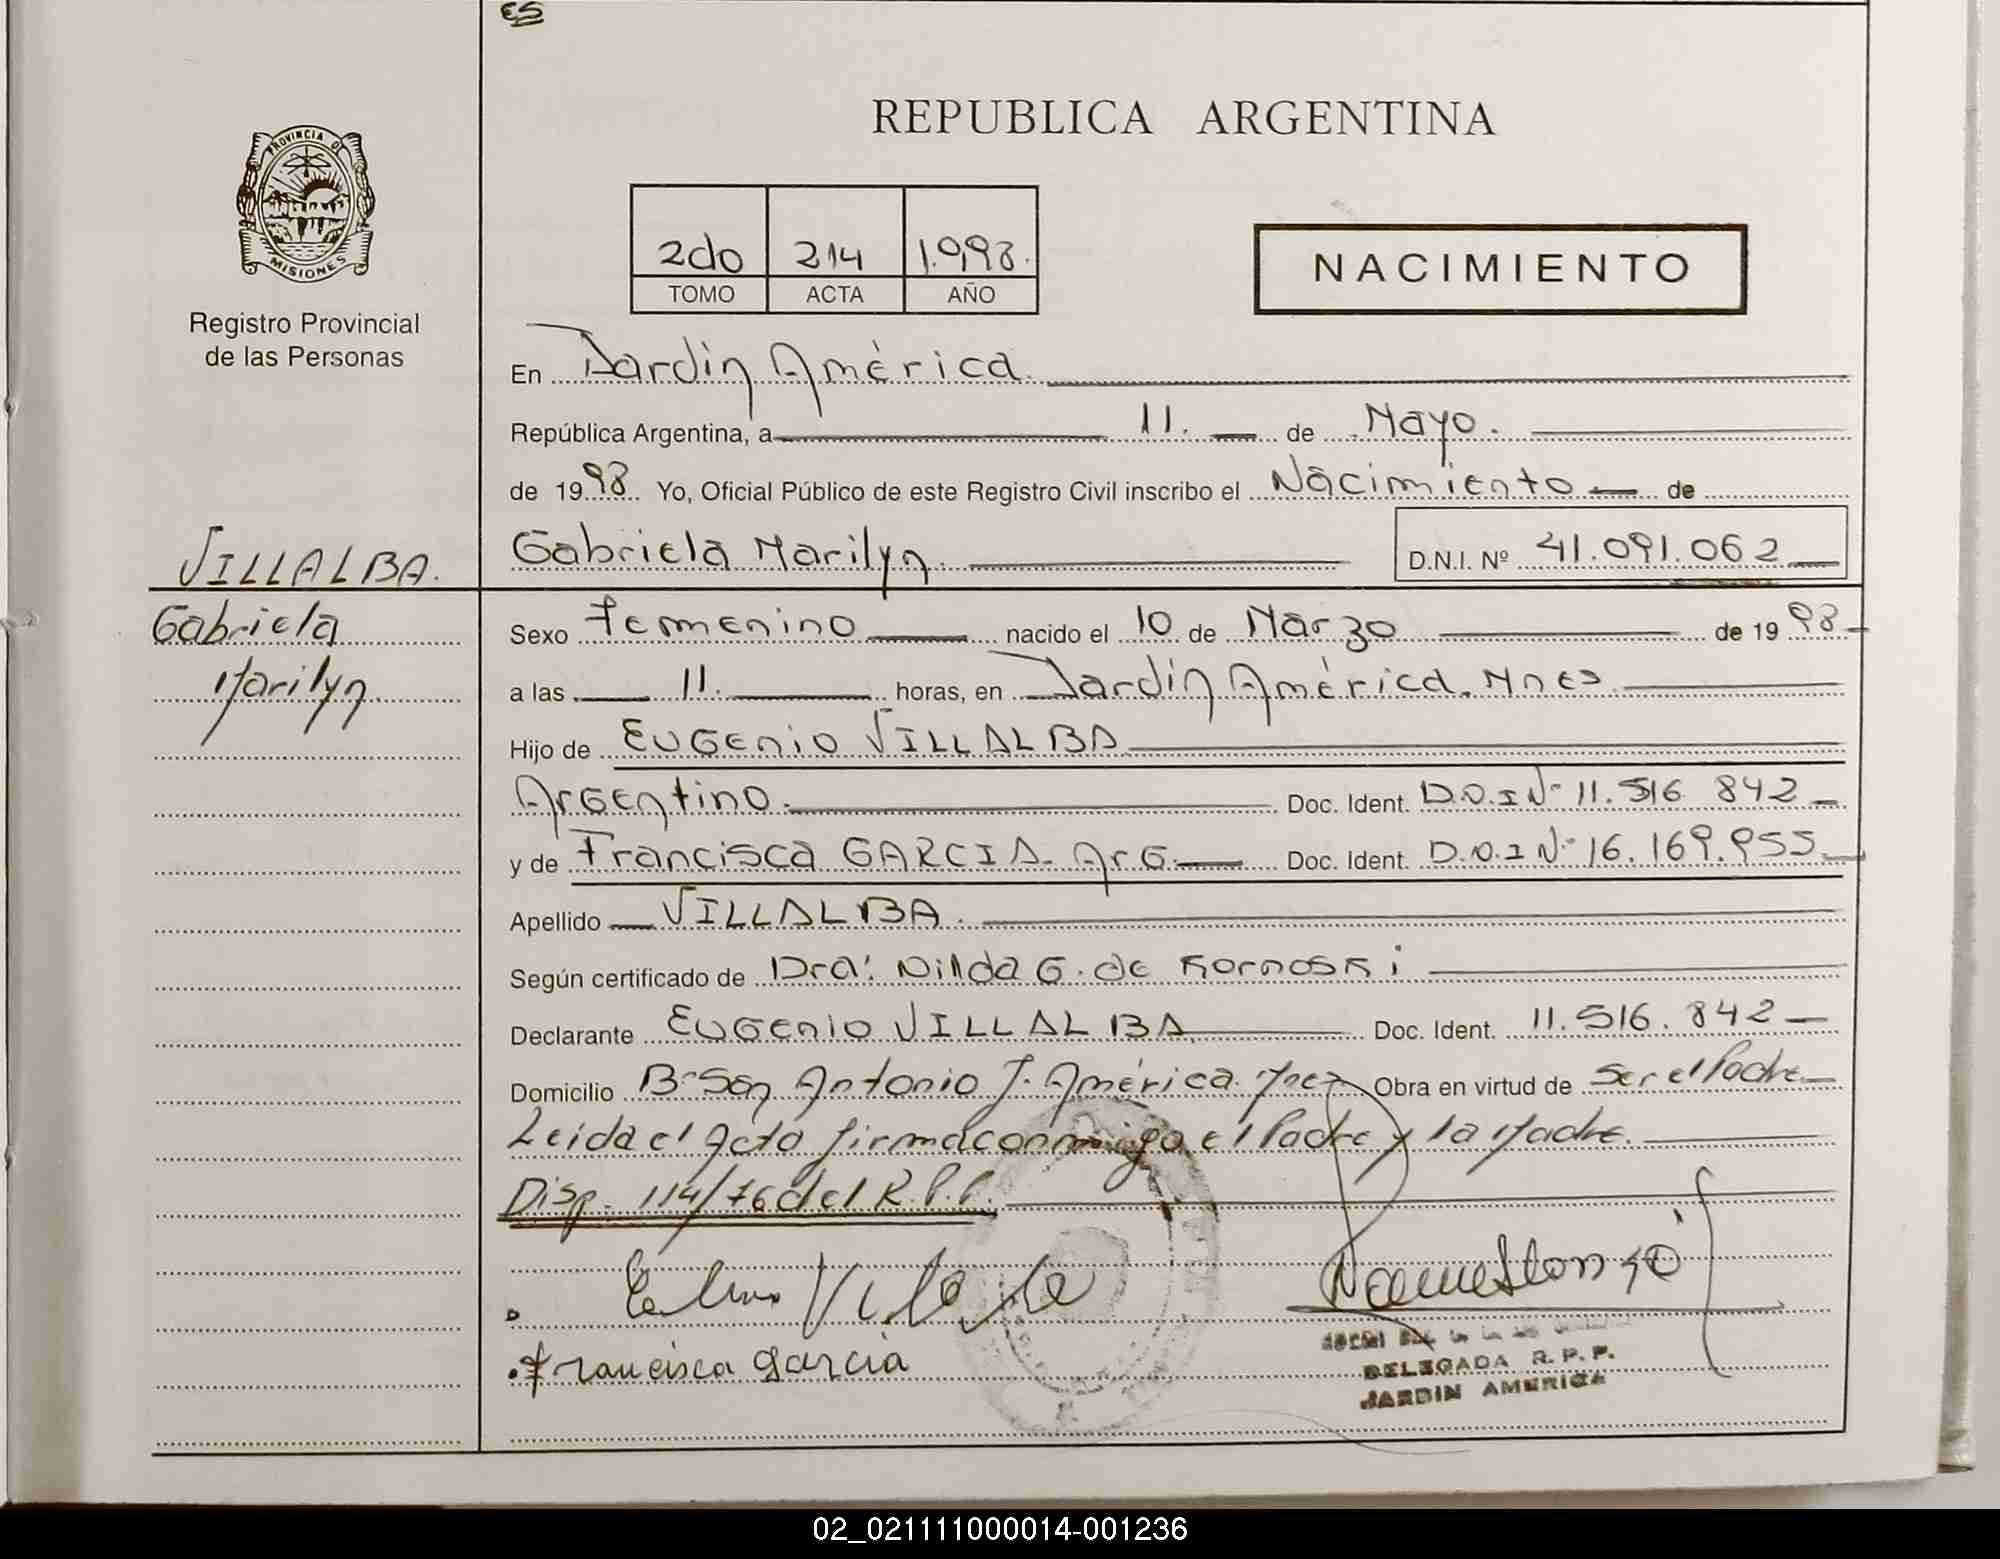 ES
REPUBLICA ARGENTINA
PROVINCIA DE
MISIONES
Registro Provincial
de las Personas
2do 214 1.998.
TOMO ACTA AÑO
NACIMIENTO
En Jardín América.
República Argentina, a 11. de Mayo.
de 1998. Yo, Oficial Público de este Registro Civil inscribo el Nacimiento de
VILLALBA.
Gabriela Marilyn. D.N.I. Nº 41.091.062
Gabriela
Marilyn.
Sexo Femenino nacido el 10 de Marzo de 19 98
a las 11. horas, en Jardín América. Mnes.
Hijo de EUGENIO VILLALBA
Argentino. Doc. Ident. D.N.I Nº 11.516 842
y de Francisca GARCIA. Arg. Doc. Ident. D.N.I Nº 16.169.955
Apellido VILLALBA.
Según certificado de Dra. Nilda G. de Kornoski
Declarante EUGENIO VILLALBA Doc. Ident. 11.516.842
Domicilio Bº San Antonio J. América. Mnes Obra en virtud de Ser el Padre
Leida el Acta firma conmigo el Padre y la Madre.
Disp. 114/76 del R.P.P.
Francisca garcia
DELEGADA R.P.P.
JARDIN AMERICA
02_021111000014-001236